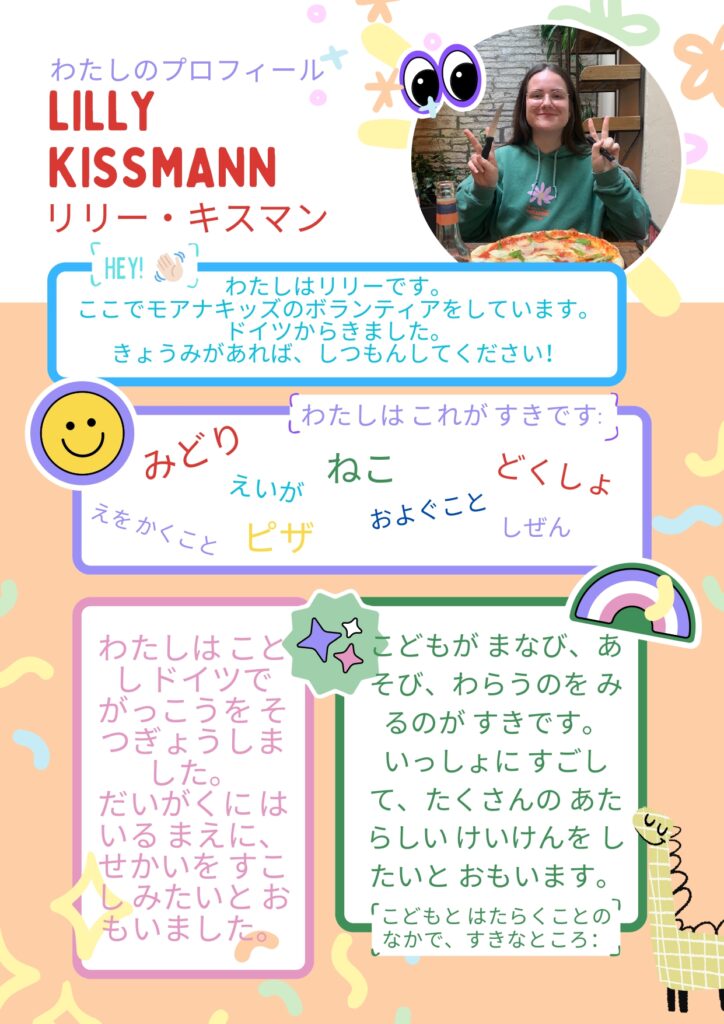 わたしのプロフィール
LILLY
KISSMANN
リリー・キスマン
HEY!
わたしはリリーです。
ここでモアナキッズのボランティアをしています。
ドイツからきました。
きょうみがあれば、しつもんしてください!
わたしは これが すきです:
みどり
えいが
ねこ
どくしょ
えを かくこと
ピザ
およぐこと
しぜん
わたしは こと
し ドイツで
がっこうを そ
つぎょうしま
した。
だいがくに は
いる まえに、
せかいを すこ
し みたいと お
もいました。
こどもが まなび、あ
そび、わらうのを み
るのが すきです。
いっしょに すごし
て、たくさんの あた
らしい けいけんを し
たいと おもいます。
こどもと はたらくことの
なかで、すきなところ: